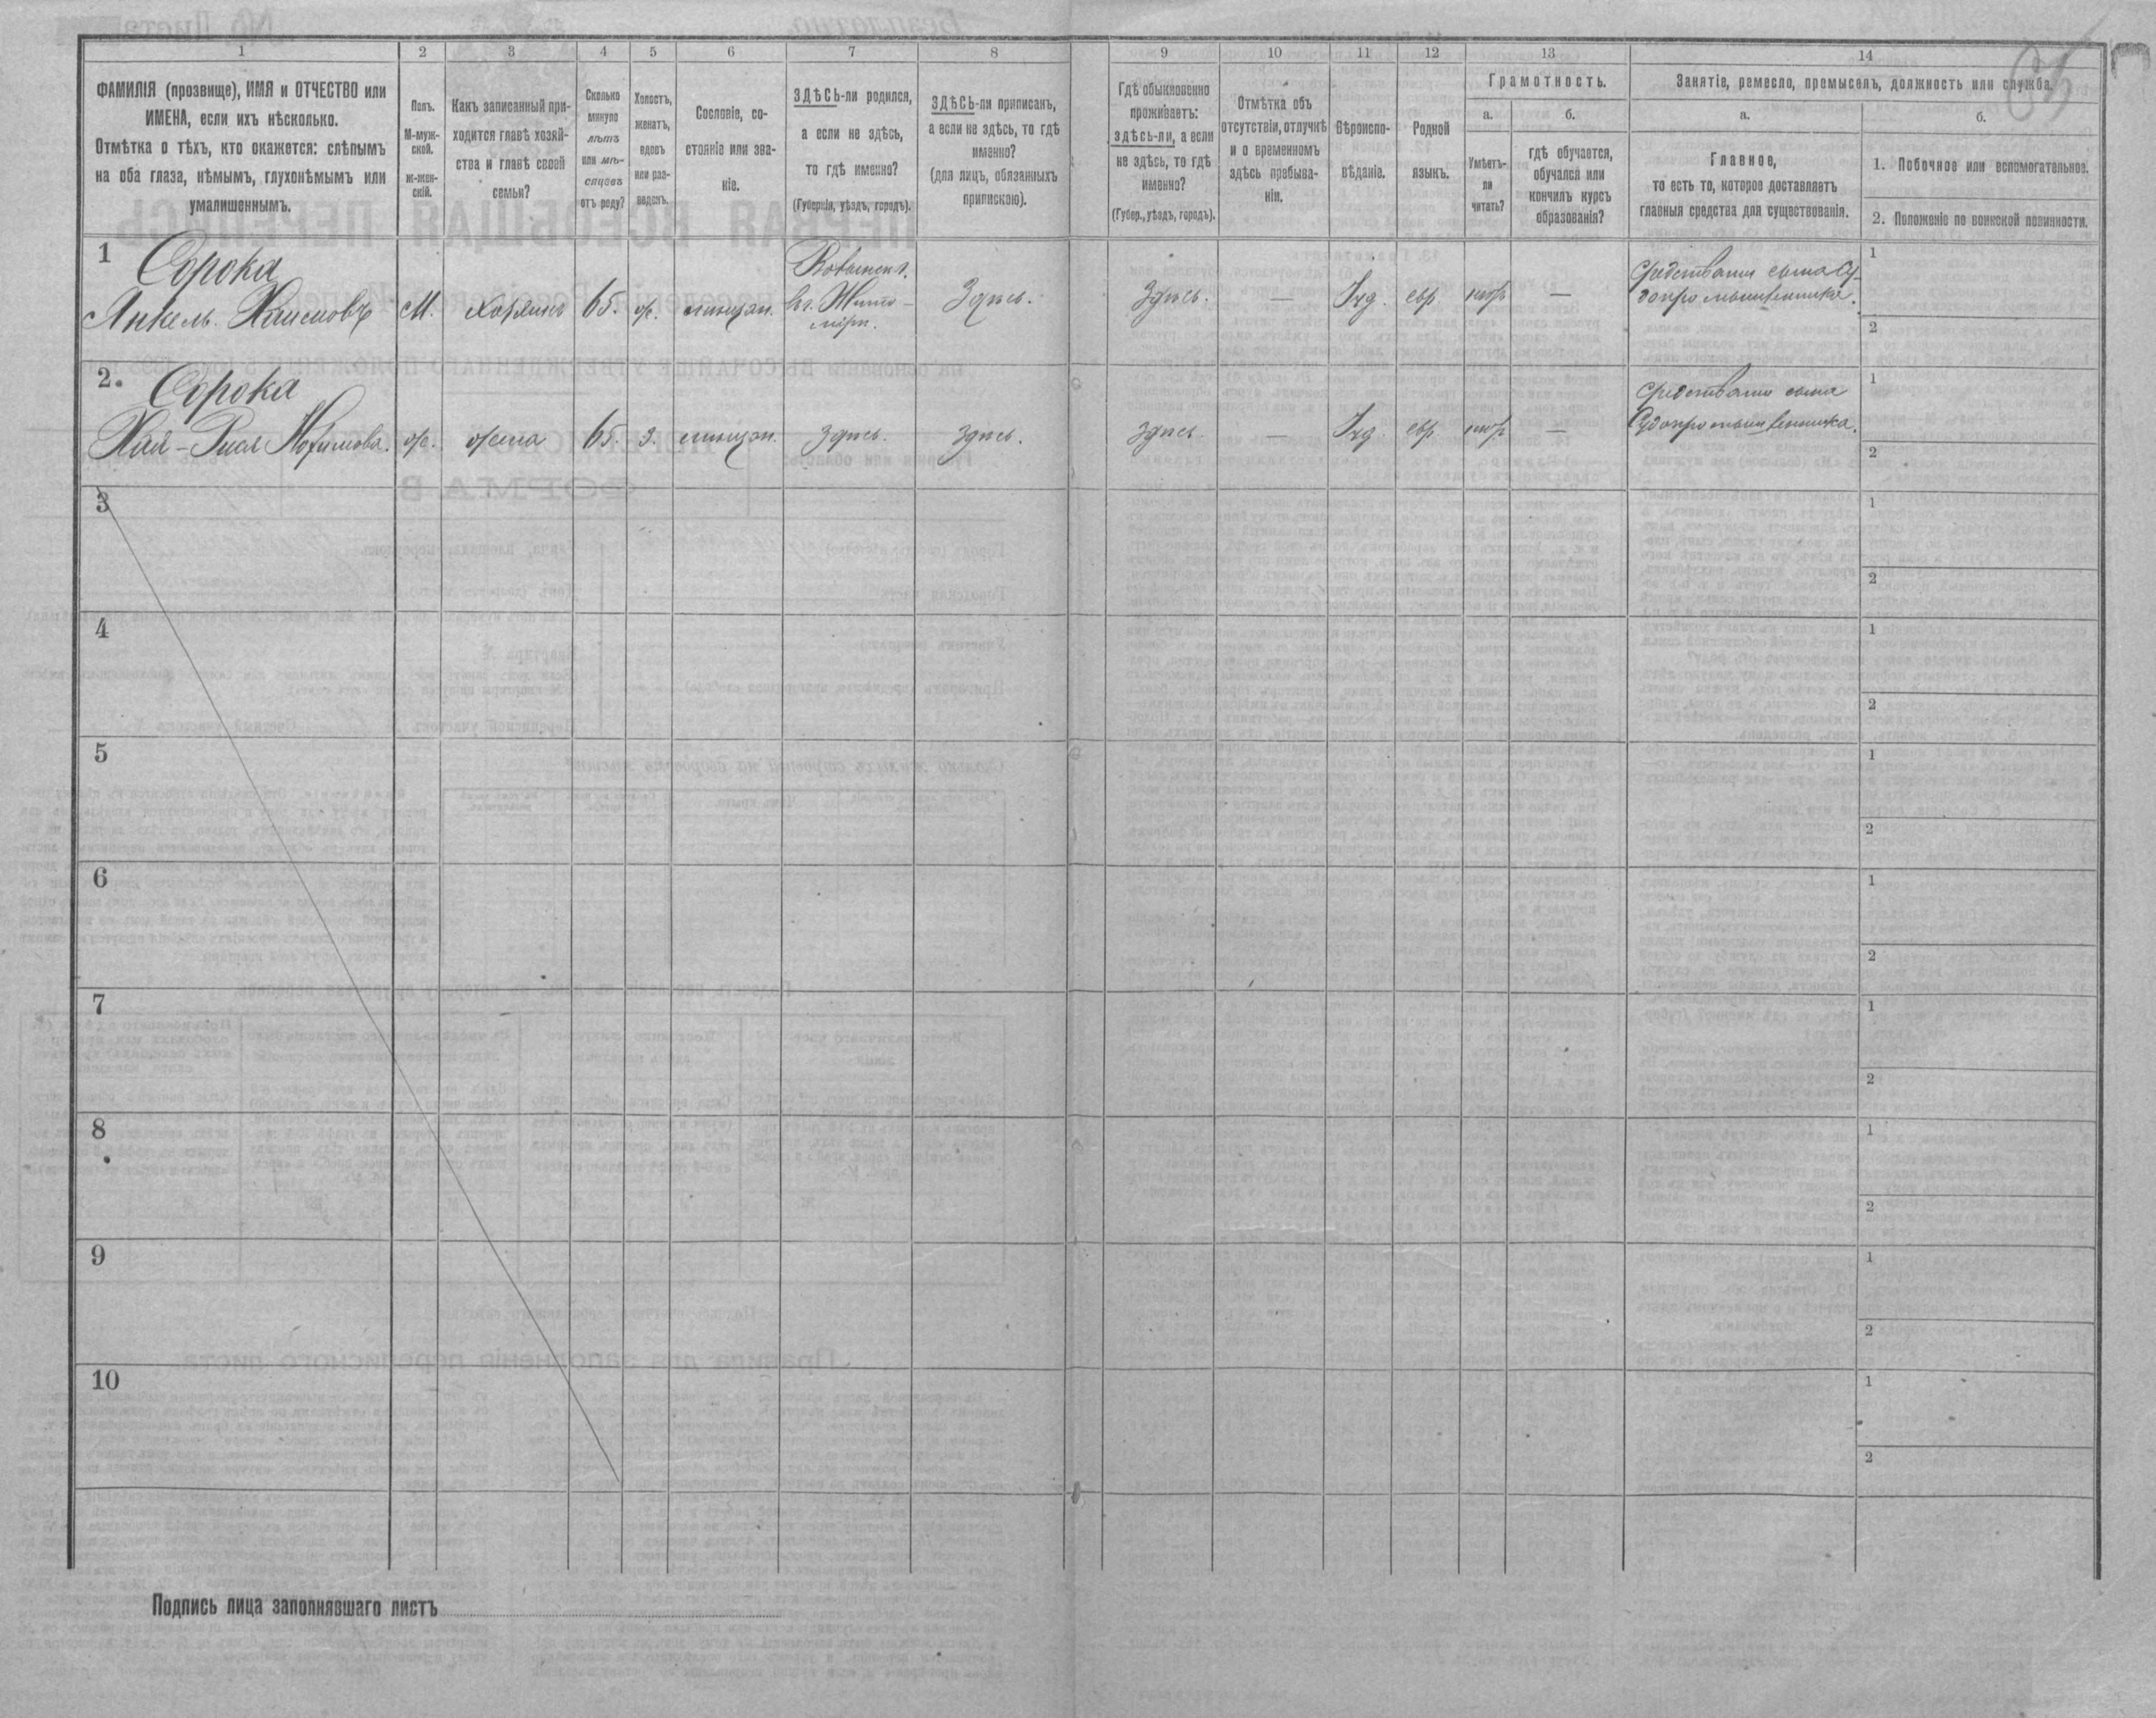 1 2 3 4 5 6 7 8 9 10 11 12 13 14
ФАМИЛІЯ (прозвище), ИМЯ и ОТЧЕСТВО или
ИМЕНА, если ихъ нѣсколько.
Отмѣтка о тѣхъ, кто окажется: слѣпымъ
на оба глаза, нѣмымъ, глухонѣмымъ или
умалишеннымъ.
Полъ.
М-муж-
ской.
ж-жен-
скій.
Какъ записанный при-
ходится главѣ хозяй-
ства и главѣ своей
семьи?
Сколько
минуло
лѣтъ
или мѣ-
сяцевъ
отъ роду?
Холостъ,
женатъ,
вдовъ
или раз-
веденъ.
Сословіе, со-
стояніе или зва-
ніе.
ЗДѢСЬ-ли родился,
а если не здѣсь,
то гдѣ именно?
(Губернія, уѣздъ, городъ).
ЗДѢСЬ-ли приписанъ,
а если не здѣсь, то гдѣ
именно?
(для лицъ, обязанныхъ
припискою).
Гдѣ обыкновенно
проживаетъ:
здѣсь-ли, а если
не здѣсь, то гдѣ
именно?
(Губер., уѣздъ, городъ).
Отмѣтка объ
отсутствіи, отлучкѣ
и о временномъ
здѣсь пребыва-
ніи.
Вѣроиспо-
вѣданіе.
Родной
языкъ.
Грамотность.
а.
Умѣетъ-
ли
читать?
б.
гдѣ обучается,
обучался или
кончилъ курсъ
образованія?
Занятіе, ремесло, промыселъ, должность или служба.
а.
Главное,
то есть то, которое доставляетъ
главныя средства для существованія.
б.
1. Побочное или вспомогательное.
2. Положеніе по воинской повинности.
1 Сорока
Янкель Хаимовъ М. хозяинъ 65. ж. мѣщан. Здѣсь. Здѣсь. — Іуд. евр. —
Средствами сына Су-
допромышленника.
1
2
2. Сорока
жена 65. з. мѣщан. здѣсь. здѣсь. здѣсь — Іуд. евр —
средствами сына
Судопромышленника.
1
2
3 1
2
4 1
2
5 1
2
6 1
2
7 1
2
8 1
2
9 1
2
10 1
2
Подпись лица заполнявшаго листъ